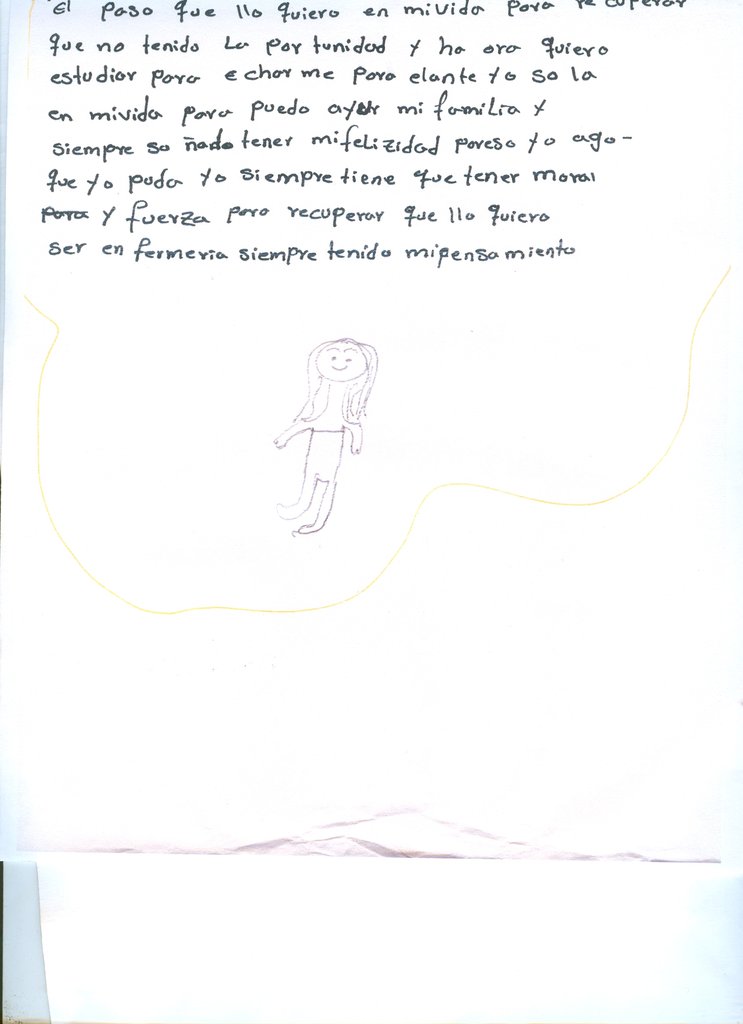 El paso que llo quiero en mivida para recuperar
que no tenido la por tunidad y ha ora quiero
estudiar para echar me para elante yo so la
en mivida para puedo ayudr mi familia y
siempre so ñado tener mifelizidad poreso yo ago-
que yo puda yo siempre tiene que tener moral
para y fuerza para recuperar que llo quiero
ser en fermeria siempre tenido mipensamiento